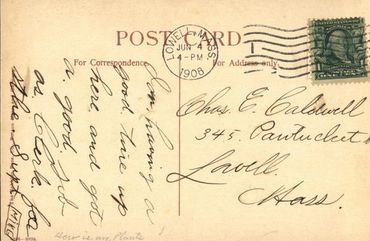 POST CARD
For Correspondence.
For Address only.
LOWELL, MASS.
JUN 4
4-PM
1908
Im having a
good time up
here and got
a good job
as Clerk for
the Supt
Chas. E. Caldwell
345. Pawtucket
Lowell
Mass.